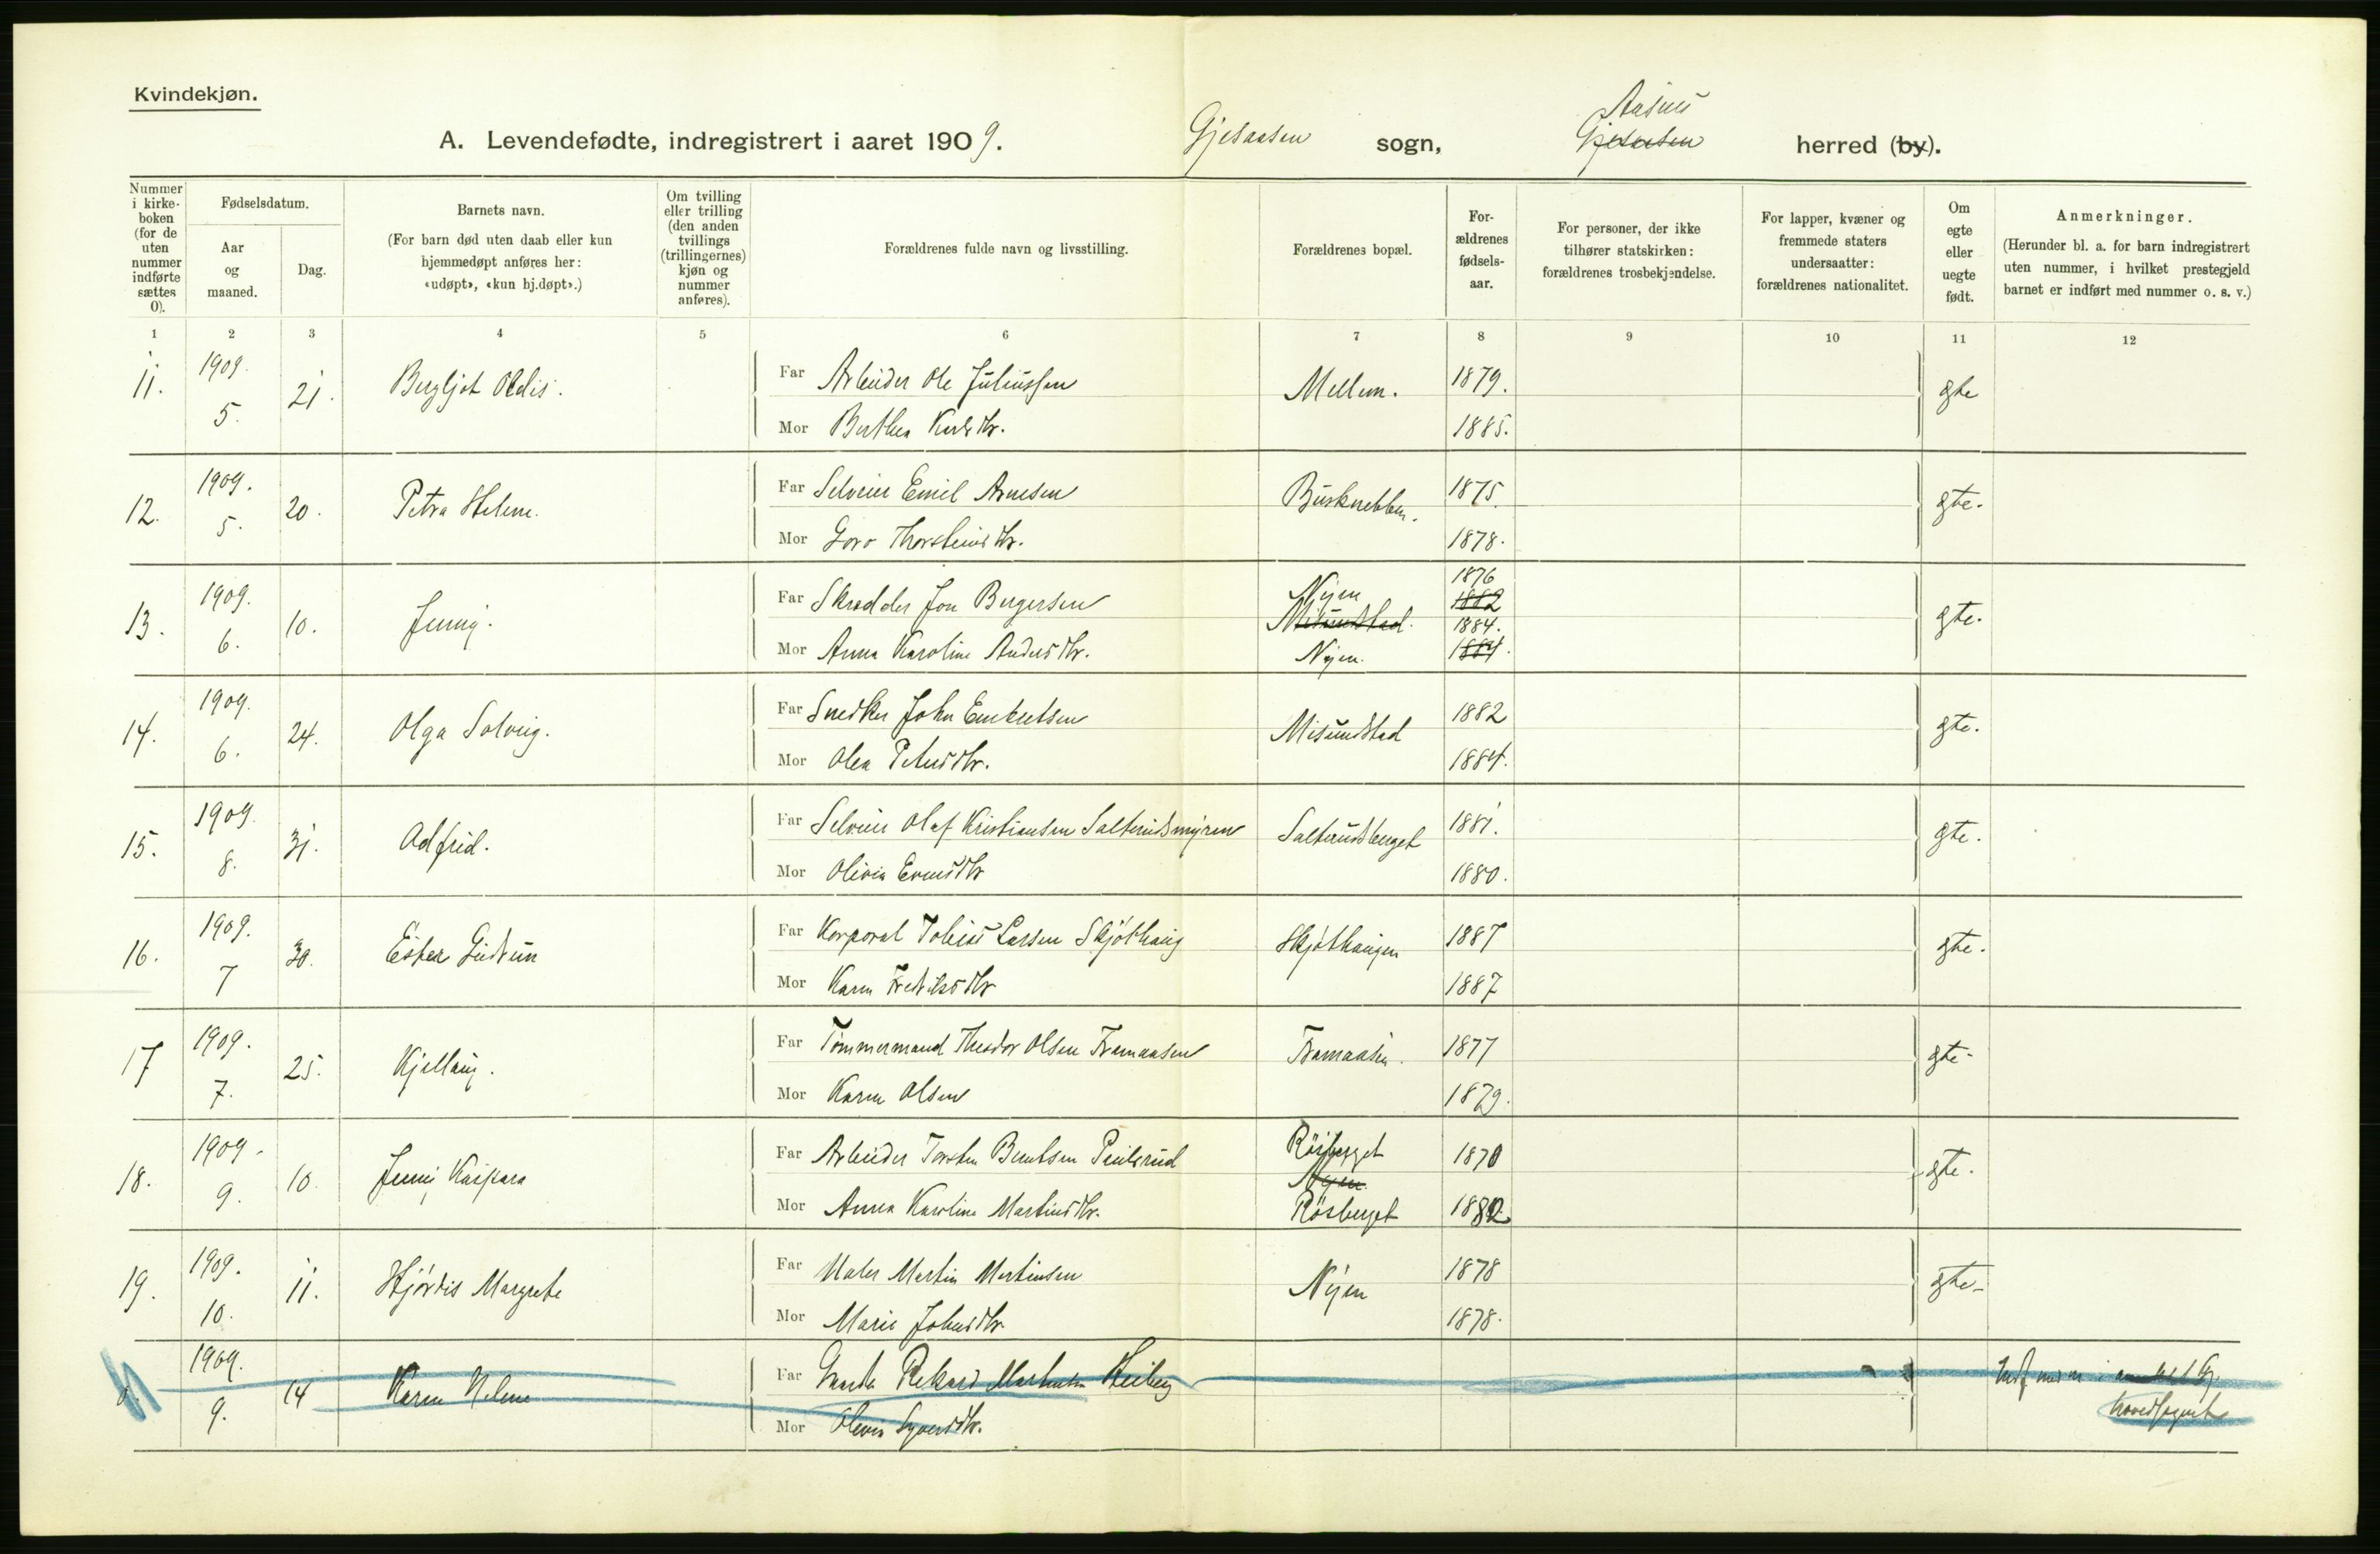 Kvindekjøn.
A. Levendefødte, indregistrert i aaret 1909. Gjesaasen sogn, Aasnes Gjesaasen herred (by).
Nummer i kirkeboken (for de uten nummer indførte sættes 0).
Fødselsdatum.
Aar og maaned.
Dag.
Barnets navn.
(For barn død uten daab eller kun hjemmedøpt anføres her: «udøpt», «kun hj.døpt».)
Om tvilling eller trilling (den anden tvillings (trillingernes) kjøn og nummer anføres).
Forældrenes fulde navn og livsstilling.
Forældrenes bopæl.
Forældrenes fødselsaar.
For personer, der ikke tilhører statskirken: forældrenes trosbekjendelse.
For lapper, kvæner og fremmede staters undersaatter: forældrenes nationalitet.
Om egte eller uegte født.
Anmerkninger.
(Herunder bl. a. for barn indregistrert uten nummer, i hvilket prestegjeld barnet er indført med nummer o. s. v.)
1 2 3 4 5 6 7 8 9 10 11 12
11. 1909. 5. 21. Bergljot Oldis. Far Arbeider Ole Juliussen Mellem. 1879. gte
Mor Berthea Karlsdtr. 1885.
12. 1909. 5. 20. Petra Helene. Far Selveier Emil Arnesen Busknebben. 1875. gte.
Mor Goro Thorsteinsdtr. 1878.
13. 1909. 6. 10. Jenny. Far Skredder Jon Bergersen Nyen Misundstad. 1876 1882 gte.
Mor Anna Karoline Andersdtr. Nyen. 1884. 1884.
14. 1909. 6. 24. Olga Solveig. Far Snedker John Embretsen Misundstad 1882 gte.
Mor Olea Petersdtr. 1884.
15. 1909. 8. 31. Odfrid. Far Selveier Olaf Kristiansen Salterudsmyren Salterudsberget 1881. gte.
Mor Olivia Evensdtr 1880.
16. 1909. 7 30. Ester Gudrun Far Korporal Tobias Larsen Skjøthaug Skjøthaugen 1887 gte.
Mor Karen Fredriksdtr 1887
17 1909. 7. 25. Kjellaug. Far Tømmermand Theodor Olsen Framaasen Framaasen. 1877 gte.
Mor Karen Olsen 1879.
18. 1909. 9. 10. Jenny Kaspara Far Arbeider Torsten Berntsen Paulsrud Røsberget Nyen. 1870 gte.
Mor Anna Karoline Martinsdtr. Røsberget 1882
19. 1909. 10. 11. Hjørdis Margrete Far Maler Martin Martinsen Nyen 1878 gte.
Mor Marie Johnsdtr. 1878.
0. 1909. 9. 14 Karen Helene Far Rikard Heiberg
Mor Olivia Syversdtr. hovedsognet